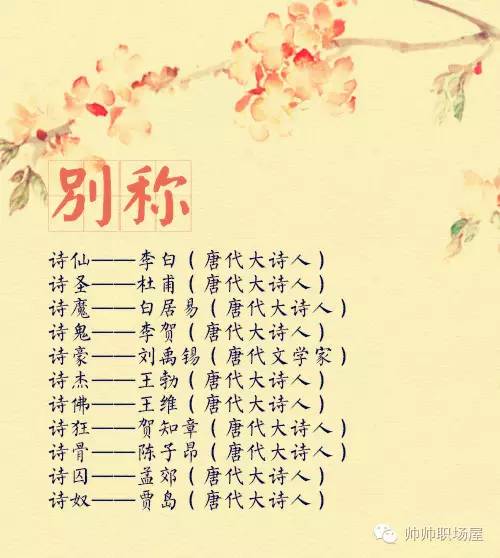 别称
诗仙——李白（唐代大诗人）
诗圣——杜甫（唐代大诗人）
诗魔——白居易（唐代大诗人）
诗鬼——李贺（唐代大诗人）
诗豪——刘禹锡（唐代文学家）
诗杰——王勃（唐代大诗人）
诗佛——王维（唐代大诗人）
诗狂——贺知章（唐代大诗人）
诗骨——陈子昂（唐代大诗人）
诗囚——孟郊（唐代大诗人）
诗奴——贾岛（唐代大诗人）
帅帅职场屋